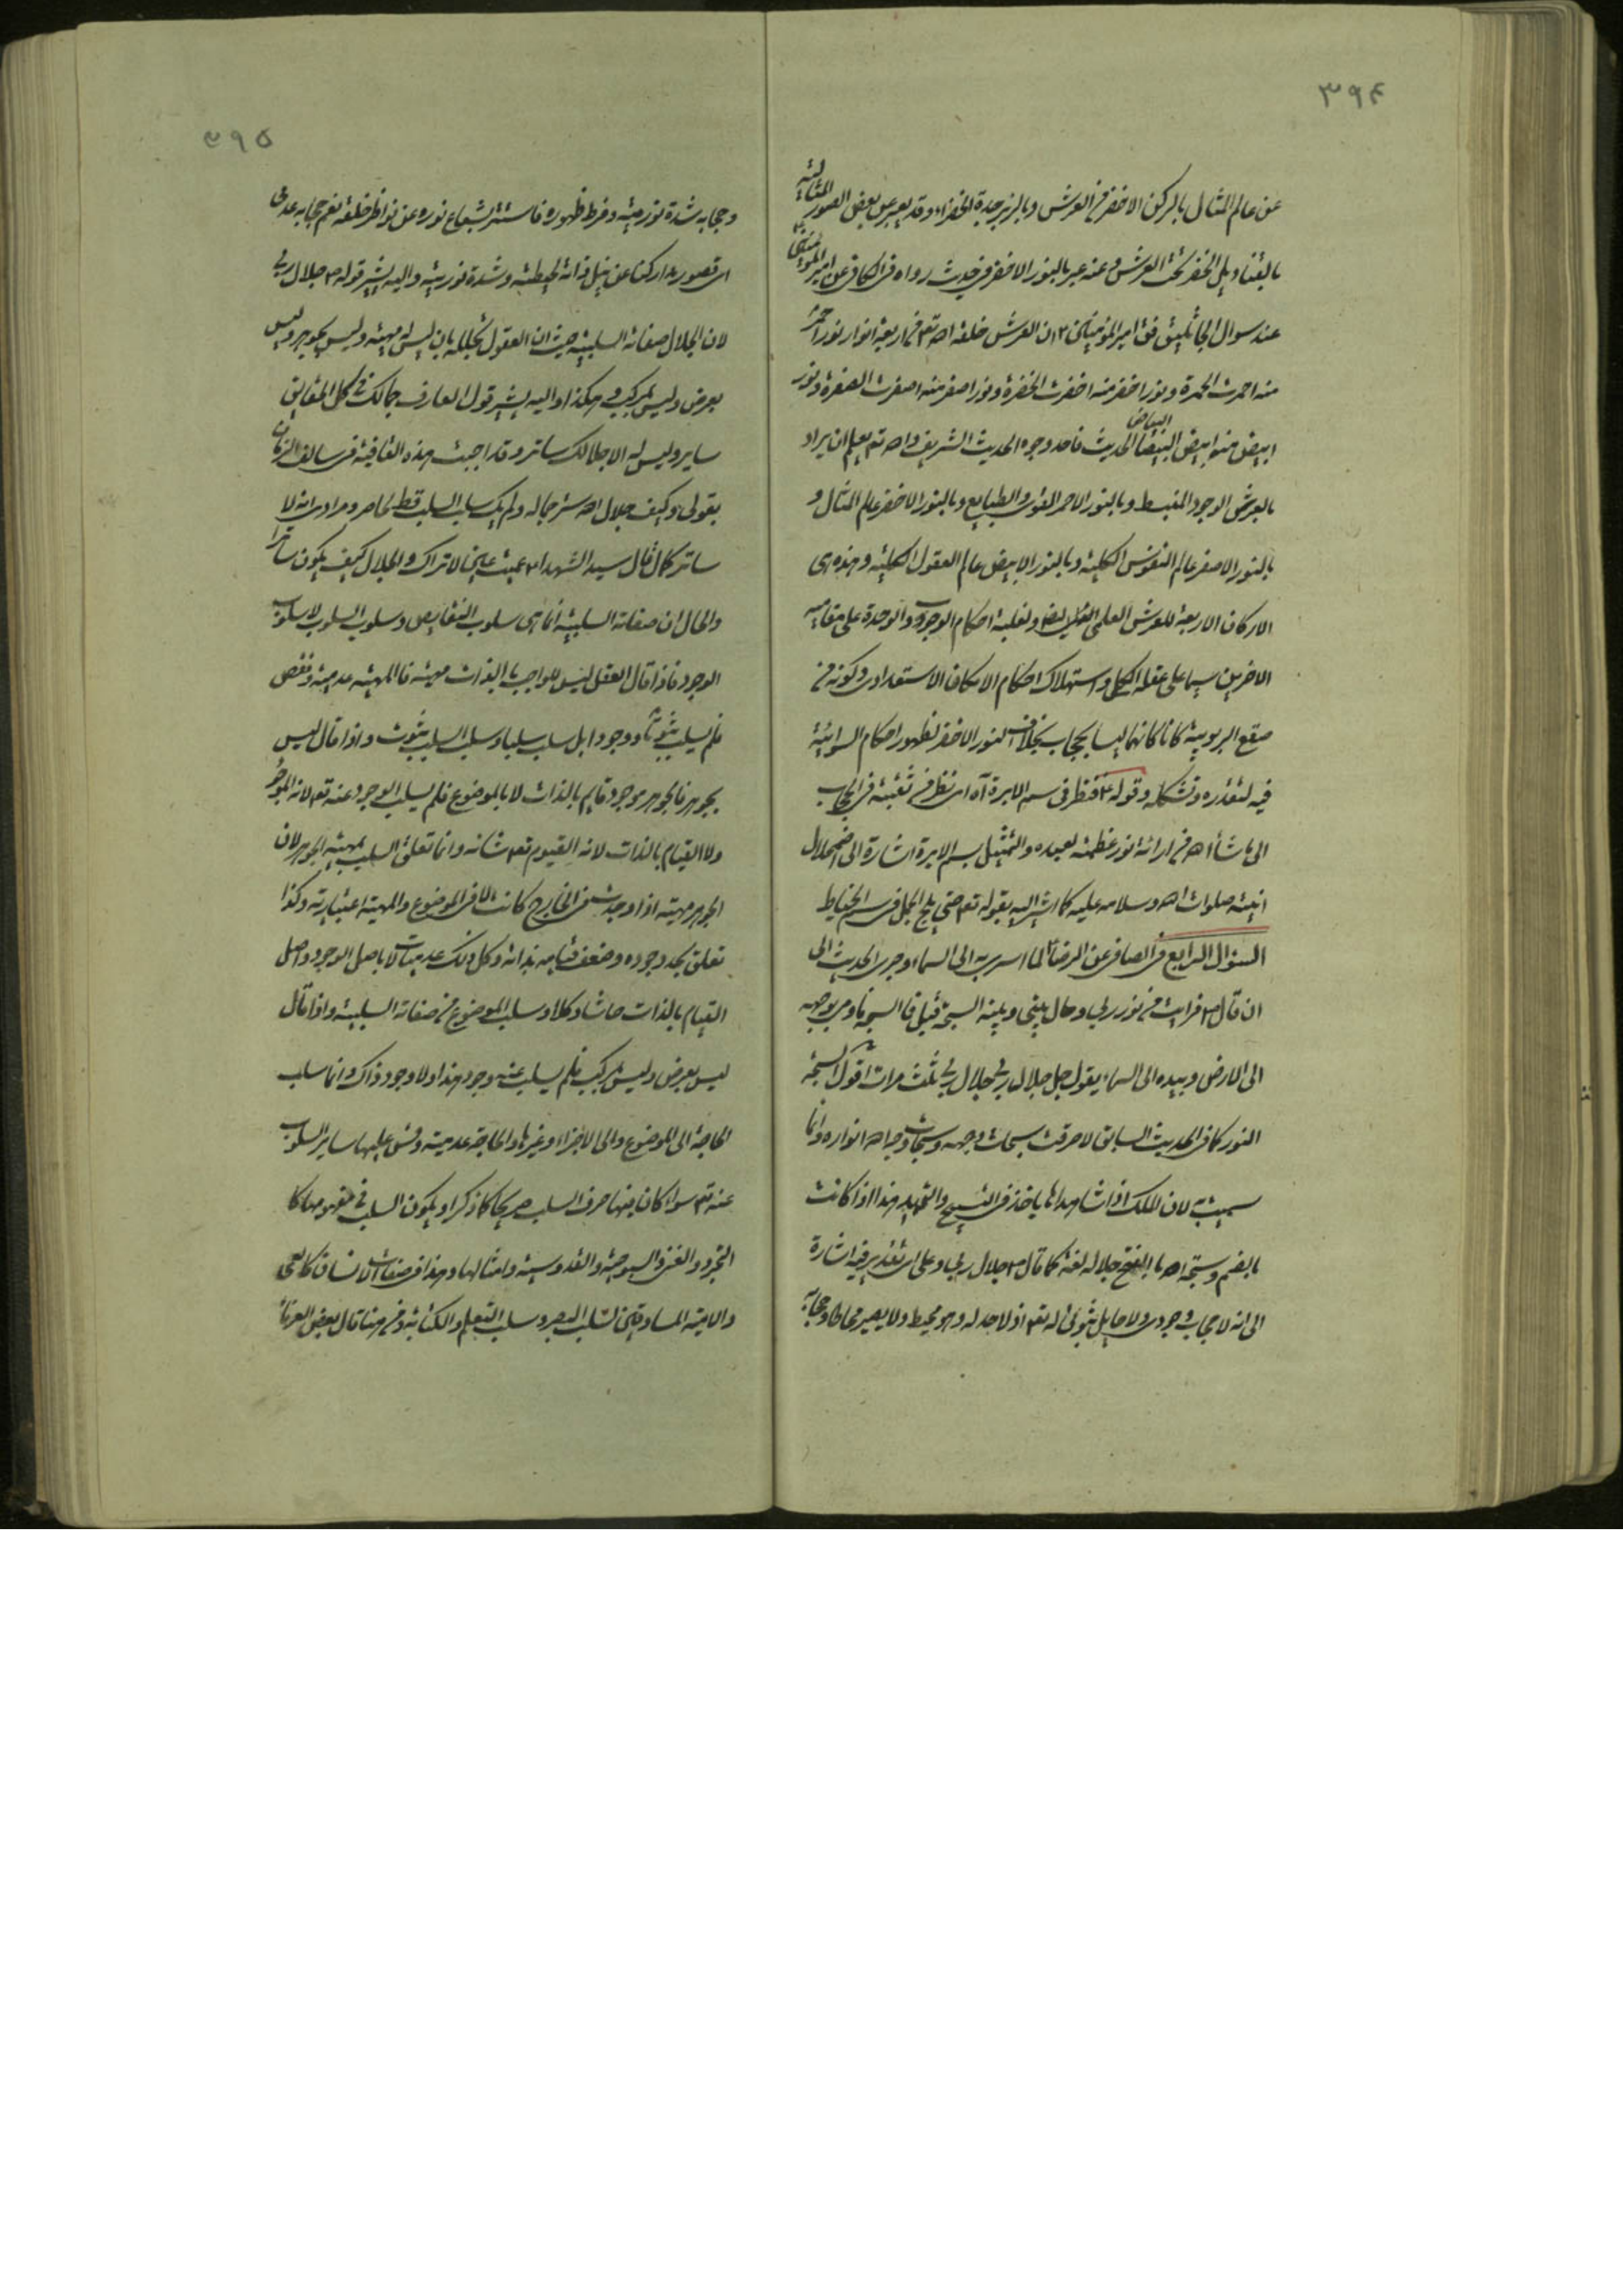 ٣٩۴
عن عالم المثال بالركن الاخضر من العرش وبالزبرجدة الخضراء وقد يعبر عن بعض الصور المثالية
بالقناديل الخضر تحت العرش وعنه عبر بالنور الاخضر في حديث رواه في الكافي عن امير المؤمنين
عند سوال الجاثليق فق امير المؤمنين ٢ ان العرش خلقه الله تعم من اربعة انوار نور احمر
منه احمرت الحمرة ونور اخضر منه اخضرت الخضرة ونور اصفر منه اصفرت الصفرة ونور
ابيض منه ابيض البياض الحديث فاحد وجوه الحديث الشريف والله تعم يعلم ان يراد
بالعرش الوجود المنبسط وبالنور الاحمر القوى والطبايع وبالنور الاخضر عالم المثال و
بالنور الاصفر عالم النفوس الكلية وبالنور الابيض عالم العقول الكلية وهذه هى
الاركان الاربعة للعرش العلمى ايضا ولغلبة احكام الوجوب والوحدة على مقاميه
الاخرين سيما على عقله الكلى واستهلاك احكام الامكان الاستعدادى وكونه من
صقع الربوبية كانا كانهما ليسا بحجاب بخلاف النور الاخضر لظهور احكام السوائية
فيه لتقدره وتشكله وقوله ٢ فنظر في سم الابرة اه اى نظر من ثقبة في الحجاب
الى ما شاء الله من ارائة نور عظمته لعبده والتمثيل بسم الابرة اشارة الى اضمحلال
انيته صلوات الله وسلامه عليه كما اشير اليه بقوله تعم حتى يلج الجمل في سم الخياط
السؤال الرابع في الصافي عن الرضا لما اسرى به الى السماء وجرى الحديث الى
ان قال ص فرايت من نور ربى وحال بينى وبينه السبحة قيل فما السبحة فاومى بوجهه
الى الارض وبيده الى السماء يقول جل جلال ربى جلال ربى ثلث مرات اقول السبحة
النور كما في الحديث السابق لاحرقت سبحات وجهه وسبحات وجه الله انواره وانما
سميت لان الملك اذا شاهدها ياخذ في التسبيح والتمجيد هذا اذا كانت
بالضم وسبحة الله بالفتح جلاله لغة كما قال ص جلال ربى وعلى اى تقدير فيه اشارة
الى انه لا حجاب وجودى ولا حايل ثبوتى له تعم اذ لا حد له وهو محيط ولا يصير محاطا وحجابه
٣٩۵
وحجابه شدة نوريته وفرط ظهوره فاستتر بشعاع نوره عن نواظر خلقه نعم حجابه عدمى
اى قصور مداركنا عن نيل ذاته المحيطة وشدة نوريته واليه يشير قوله ص جلال ربى
لان الجلال صفاته السلبية حيث ان العقول تجلله بان ليس له مهية وليس بجوهر وليس
بعرض وليس بمركب وهكذا واليه يشير قول العارف جمالك في كل الحقايق
ساير وليس له الا جلالك ساتر وقد اجبت هذه القافية في سالف الزمان
بقولى وكيف جلال الله ستر جماله ولم يك سلب السلب قط يحاصر ومرادى انه لا
ساتر كما قال سيد الشهداء عميت عين لا تراك والجلال كيف يكون ساترا
والحال ان صفاته السلبية انما هى سلوب النقايص وسلوب السلوب لا سلوب
الوجود فاذا قال العقل ليس للواجب بالذات مهية فالمهية عدمية ونقص
فلم يسلب ثبوتا ووجودا بل سلب سلبا وسلب السلب ثبوت واذا قال ليس
بجوهر فالجوهر موجود قايم بالذات لا بالموضوع فلم يسلب الوجود عنه تعم لانه الموجود
ولا القيام بالذات لانه القيوم تعم شانه وانما تعلق السلب بمهية الجوهر لان
الجوهر مهية اذا وجدت في الخارج كانت لا في الموضوع والمهية اعتبارية وكذا
تعلق بحد وجوده وضعف قيامه بذاته وكل ذلك عدميات لا باصل الوجود واصل
القيام بالذات حاشا وكلا وسلب الموضوع من صفاته السلبية واذا قال
ليس بعرض وليس بمركب فلم يسلب عنه وجود هذا ولا وجود ذاك وانما سلب
الحاجة الى الموضوع والى الاجزاء وغيرها والحاجة عدمية وقس عليها ساير السلوب
عنه تعم سواء كان منها حرف السلب صريحا كما ذكر او يكون السلب في مفهومها كا
التجرد والغنى والسبوحية والقدوسية وامثالها وهذا في صفات الانسان كالعمى
والامية المساوقين لسلب البصر وسلب التعلم والكتابة ومن هنا قال بعض العرفاء